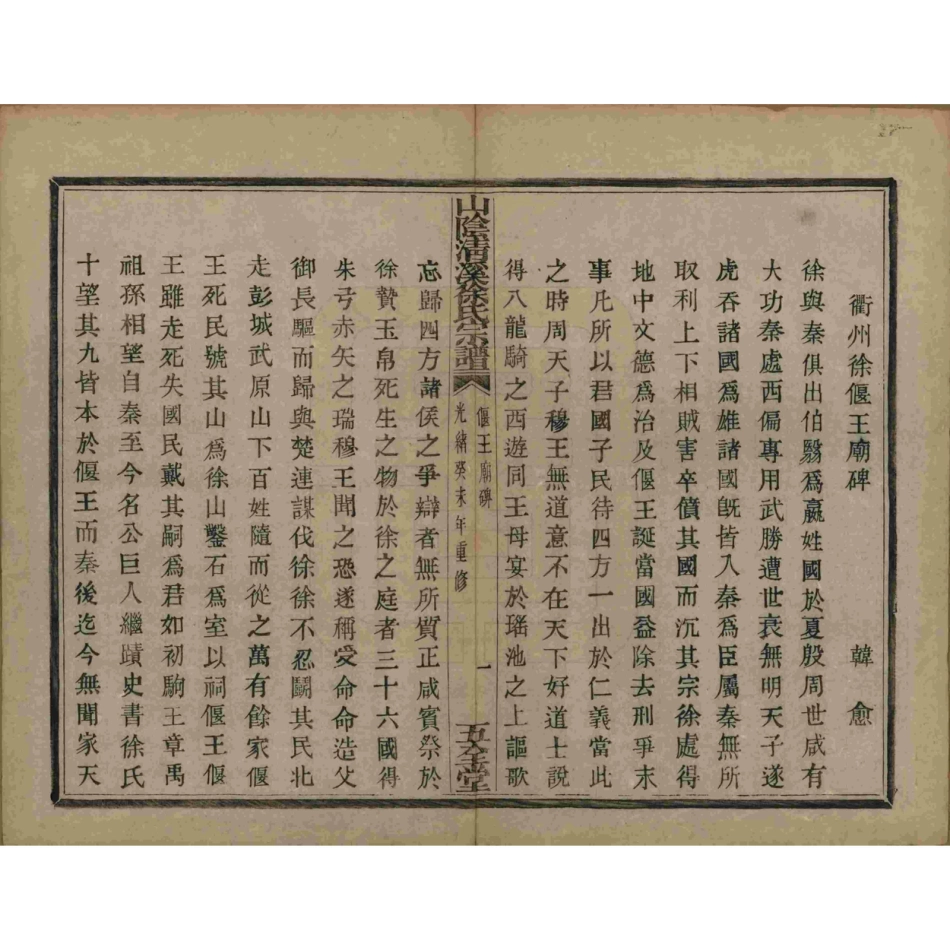 衢州徐偃王廟碑 韓愈
徐與秦俱出伯翳爲嬴姓國於夏殷周世咸有
大功秦處西偏專用武勝遭世衰無明天子遂
虎吞諸國爲雄諸國旣皆入秦爲臣屬秦無所
取利上下相賊害卒僨其國而沉其宗徐處得
地中文德爲治及偃王誕當國益除去刑爭末
事凡所以君國子民待四方一出於仁義當此
之時周天子穆王無道意不在天下好道士說
得八龍騎之西遊同王母宴於瑤池之上謳歌
山陰清溪徐氏宗譜
偃王廟碑
光緒癸未年重修
一
五全堂
忘歸四方諸侯之爭辯者無所質正咸賓祭於
徐贄玉帛死生之物於徐之庭者三十六國得
朱弓赤矢之瑞穆王聞之恐遂稱受命命造父
御長驅而歸與楚連謀伐徐徐不忍鬭其民北
走彭城武原山下百姓隨而從之萬有餘家偃
王死民號其山爲徐山鑿石爲室以祠偃王偃
王雖走死失國民戴其嗣爲君如初駒王章禹
祖孫相望自秦至今名公巨人繼蹟史書徐氏
十望其九皆本於偃王而秦後迄今無聞家天